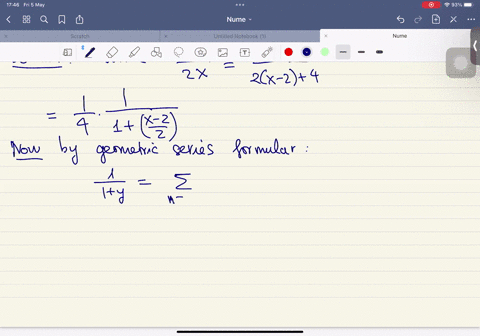 17:46 Fri 5 May
Nume
Scratch Untitled Notebook (1) Nume
2x = 2(x-2)+4
= 1/4 · 1/(1+((x-2)/2))
Now by geometric series formular :
1/(1+y) = Σ n=